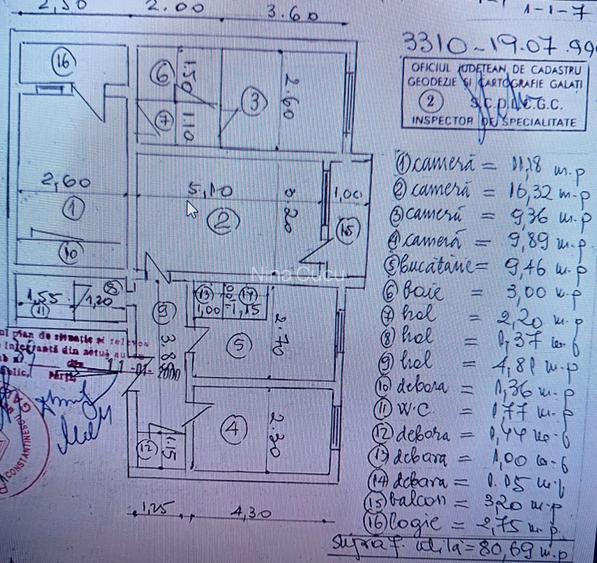 2,50 2.00 3.60
1-1-7
3310-19.07.99
OFICIUL JUDEȚEAN DE CADASTRU
GEODEZIE ȘI CARTOGRAFIE GALAȚI
2
INSPECTOR DE SPECIALITATE
16
6 1.50 3 2.60
7 1.10
2,60 5,10 1,00
1 2 3.20 15
10
1,55 1,20 8
11
9 3.85
13 14
1,00 1,15
5 2.70
4 2.30
12 1.15
1,25 4,30
Nina Cucu
plan de situație și releveu
1 cameră = 11,18 m.p
2 cameră = 16,32 m.p
3 cameră = 9,36 m.p
4 cameră = 9,89 m.p
5 bucătărie = 9,46 m.p
6 baie = 3,00 m.p
7 hol = 2,20 m.p
8 hol = 1,37 m.p
9 hol = 4,81 m.p
10 debara = 1,36 m.p
11 W.C = 1,77 m.p
12 debara = 1,44 m.p
13 debara = 1,00 m.p
14 debara = 1.15 m.p
15 balcon = 3,20 m.p
16 logie = 2,75 m.p.
supraf. utila = 80,69 m.p
CONSTANTINESCU